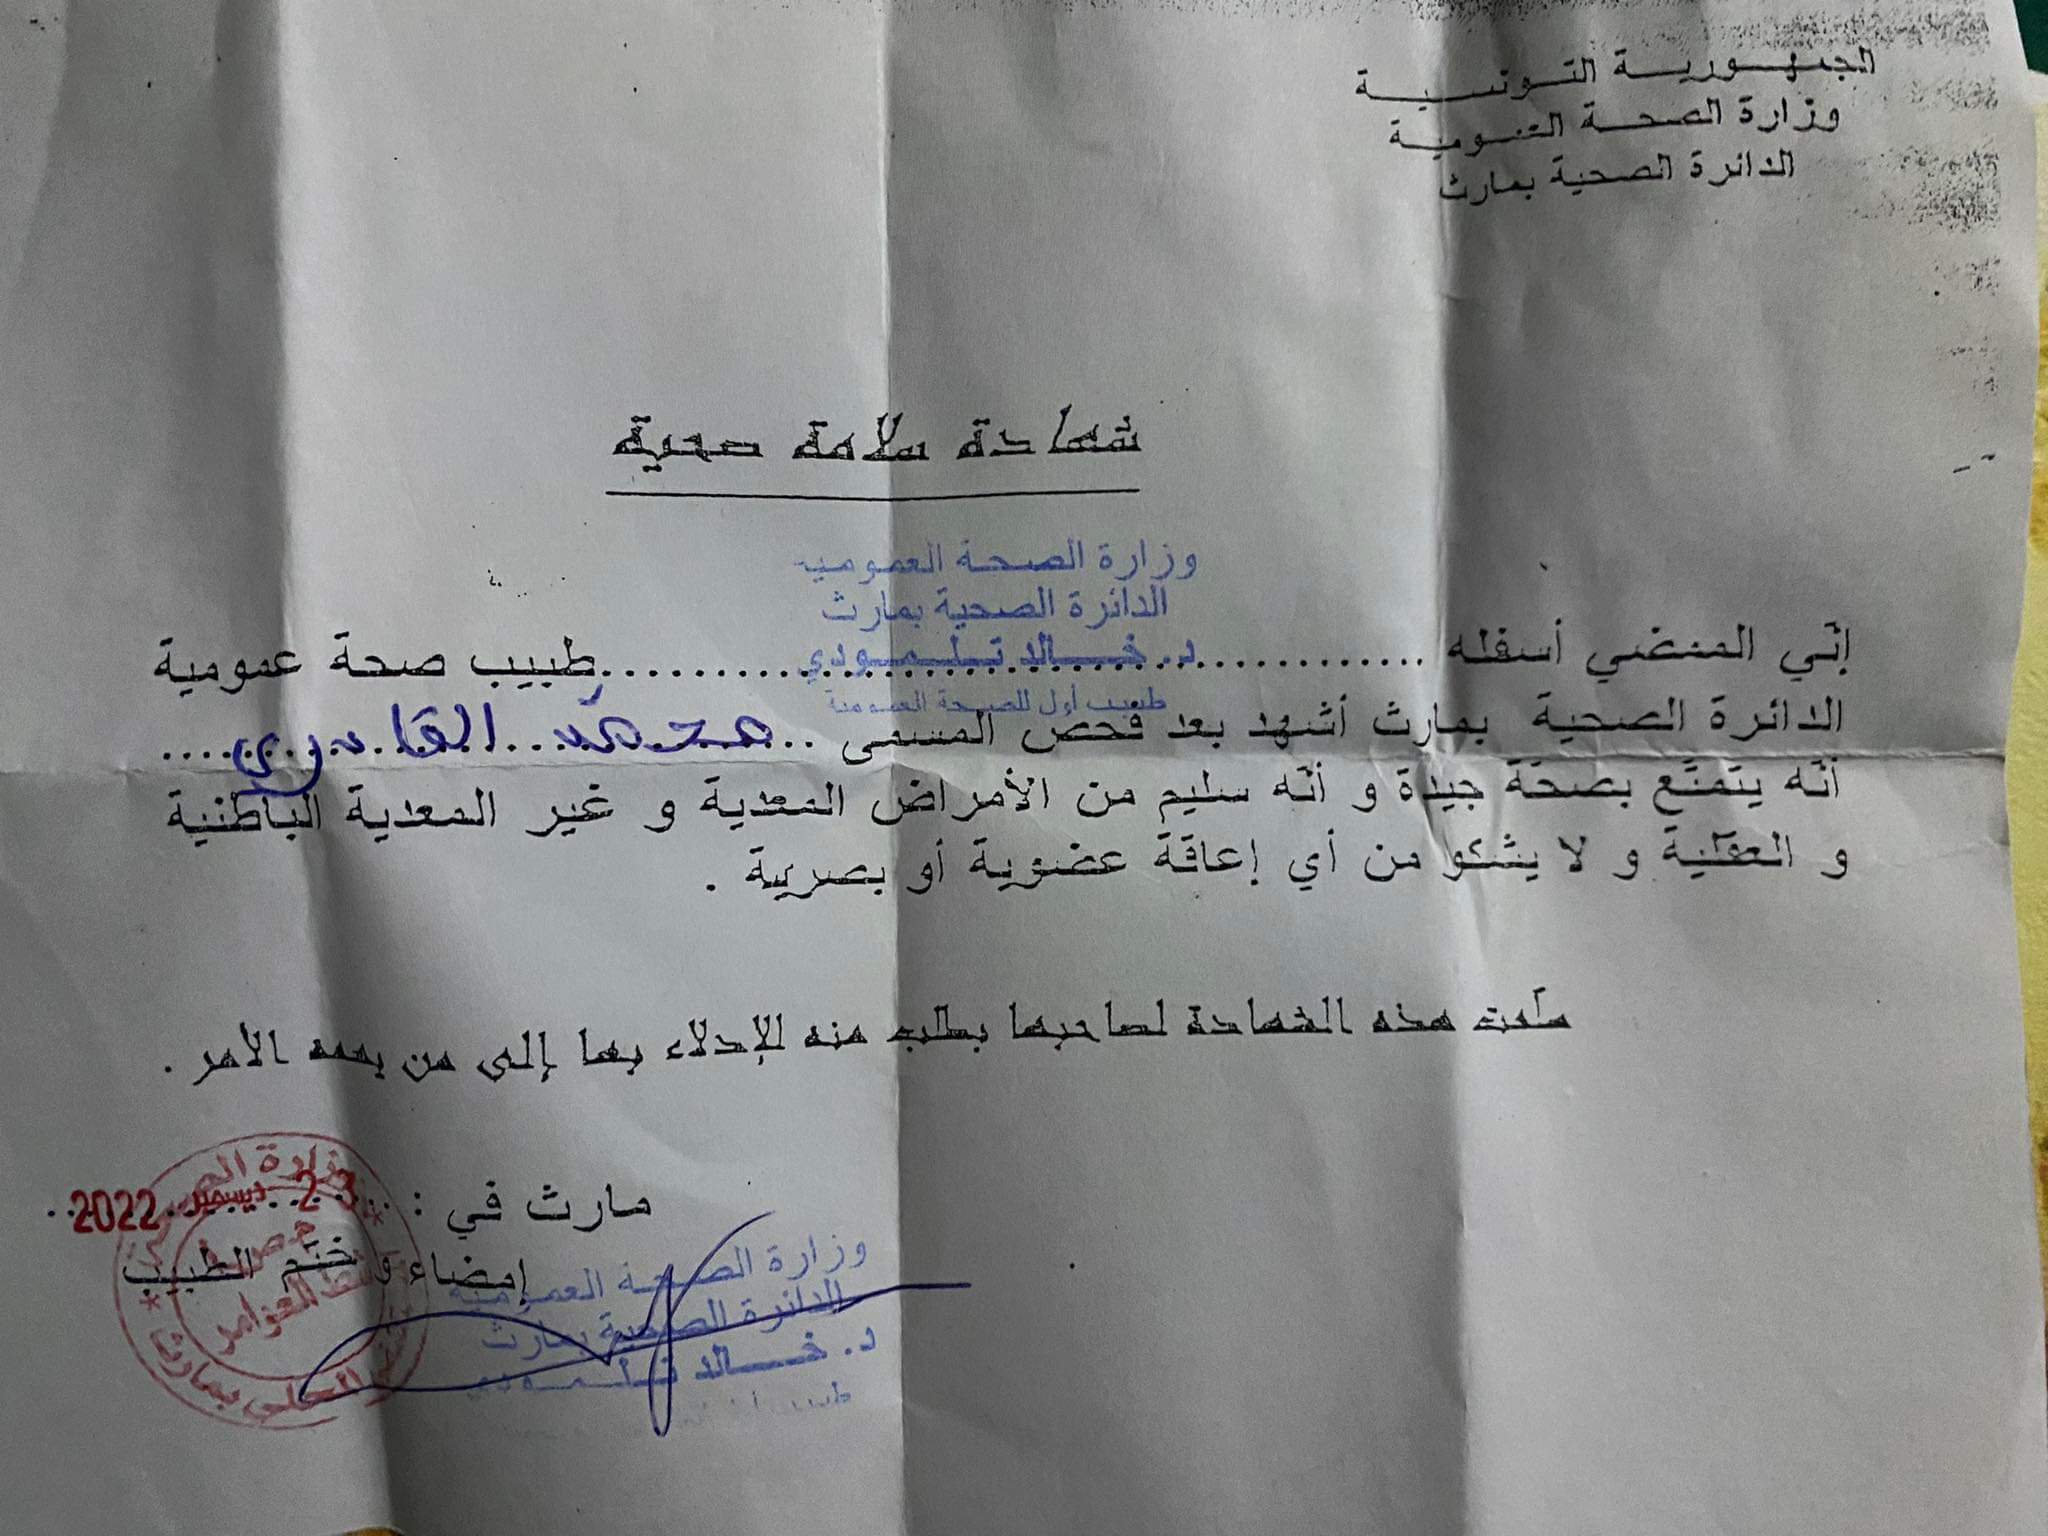 الجمهورية التونسية
وزارة الصحة العمومية
الدائرة الصحية بمارث
شهادة سلامة صحية
وزارة الصحة العمومية
الدائرة الصحية بمارث
د. خالد تيلمودي
طبيب أول للصحة العمومية
إنّي الممضي أسفله ........................................ طبيب صحة عمومية
الدائرة الصحية بمارث أشهد بعد فحص المسمى .. محمد القادري ....
أنّه يتمتّع بصحّة جيّدة و أنّه سليم من الأمراض المعدية و غير المعدية الباطنية
و العقليّة و لا يشكو من أي إعاقة عضوية أو بصرية .
سلّمت هذه الشهادة لصاحبها بطلب منه للإدلاء بها إلى من يهمه الأمر .
مارث في : 23 ديسمبر 2022
إمضاء و ختم الطبيب
وزارة الصحة العمومية
الدائرة الصحية بمارث
د. خالد تيلمودي
وزارة الصحة
المحلي بمارث
العوامر